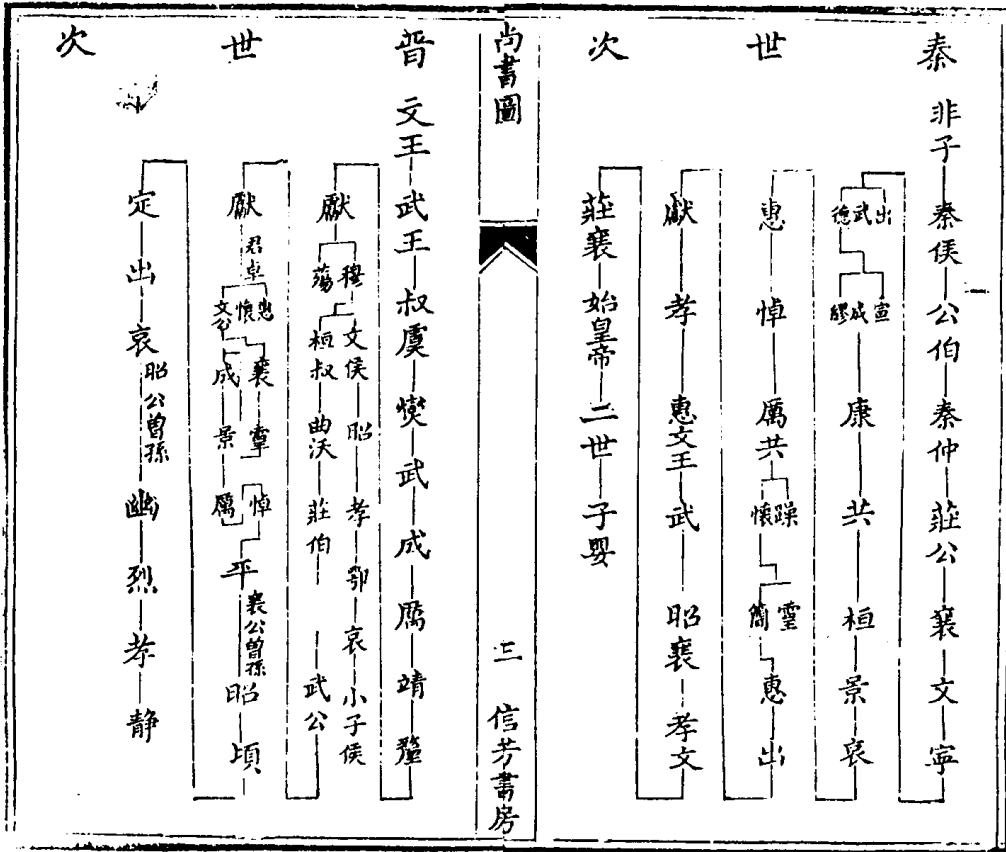 秦世次
非子 秦侯 公伯 秦仲 莊公 襄 文 寧
出 武 德
宣 成 繆
康 共 桓 景 哀
惠 悼 厲共
躁 懷
靈 簡
惠 出
獻 孝 惠文王 武 昭襄 孝文
莊襄 始皇帝 二世 子嬰
尚書圖
三 信芳書房
晉世次
文王 武王 叔虞 燮 武 成 厲 靖 釐
獻
穆 殤
文侯 昭 孝 鄂 哀 小子侯
桓叔 曲沃 莊伯 武公
獻
君卓
惠 懷 文公
襄 靈
成 景 厲
悼
平
襄公曽孫
昭 頃
定 出 哀
昭公曽孫
幽 烈 孝 静